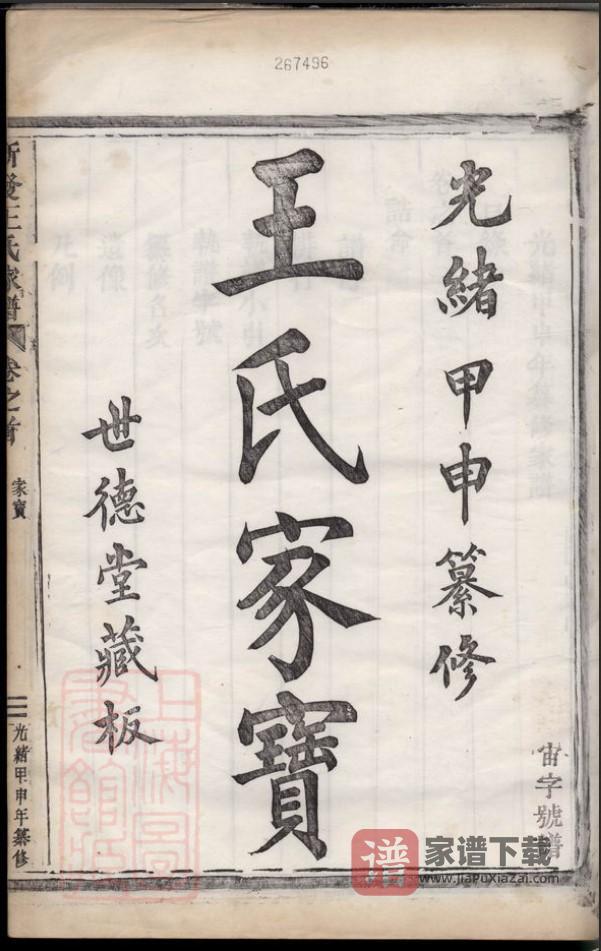 267496
光緒甲申纂修
王氏家寶
世德堂藏板
宙字號譜
新安王氏家譜
卷之首
家寶
二
光緒甲申年纂修
上海圖書館藏
谱
家谱下载
www.jiaPuXiazai.com